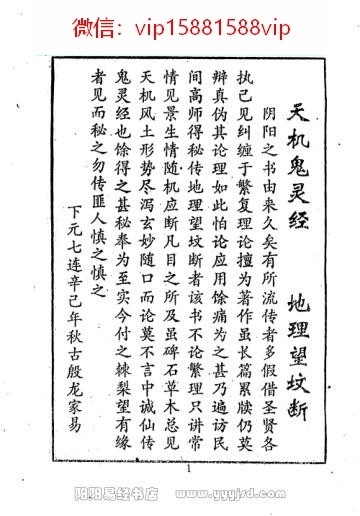 微信：vip15881588vip
天机鬼灵经　地理望坟断
阴阳之书由来久矣有所流传者多假借圣贤各
执己见纠缠于繁复理论擅为著作虽长篇累牍仍莫
辩真伪其论理如此怕论应用馀痛为之甚乃遍访民
间高师得秘传地理望坟断者该书不论繁理只讲常
情见景生情随机应断凡目之所及虽碑石草木总见
天机风土形势尽泻玄妙随口而论莫不言中诚仙传
鬼灵经也馀得之甚秘奉为至实今付之棘梨望有缘
者见而秘之勿传匪人慎之慎之
下元七连辛己年秋古殷龙家易
1
阴阳易经书店
www.yyyjsd.com